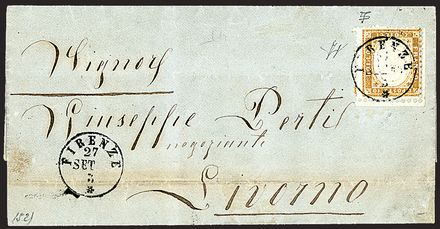 Signor
Giuseppe Perti
negoziante
Livorno
FIRENZE
27
SET
3
FIRENZE